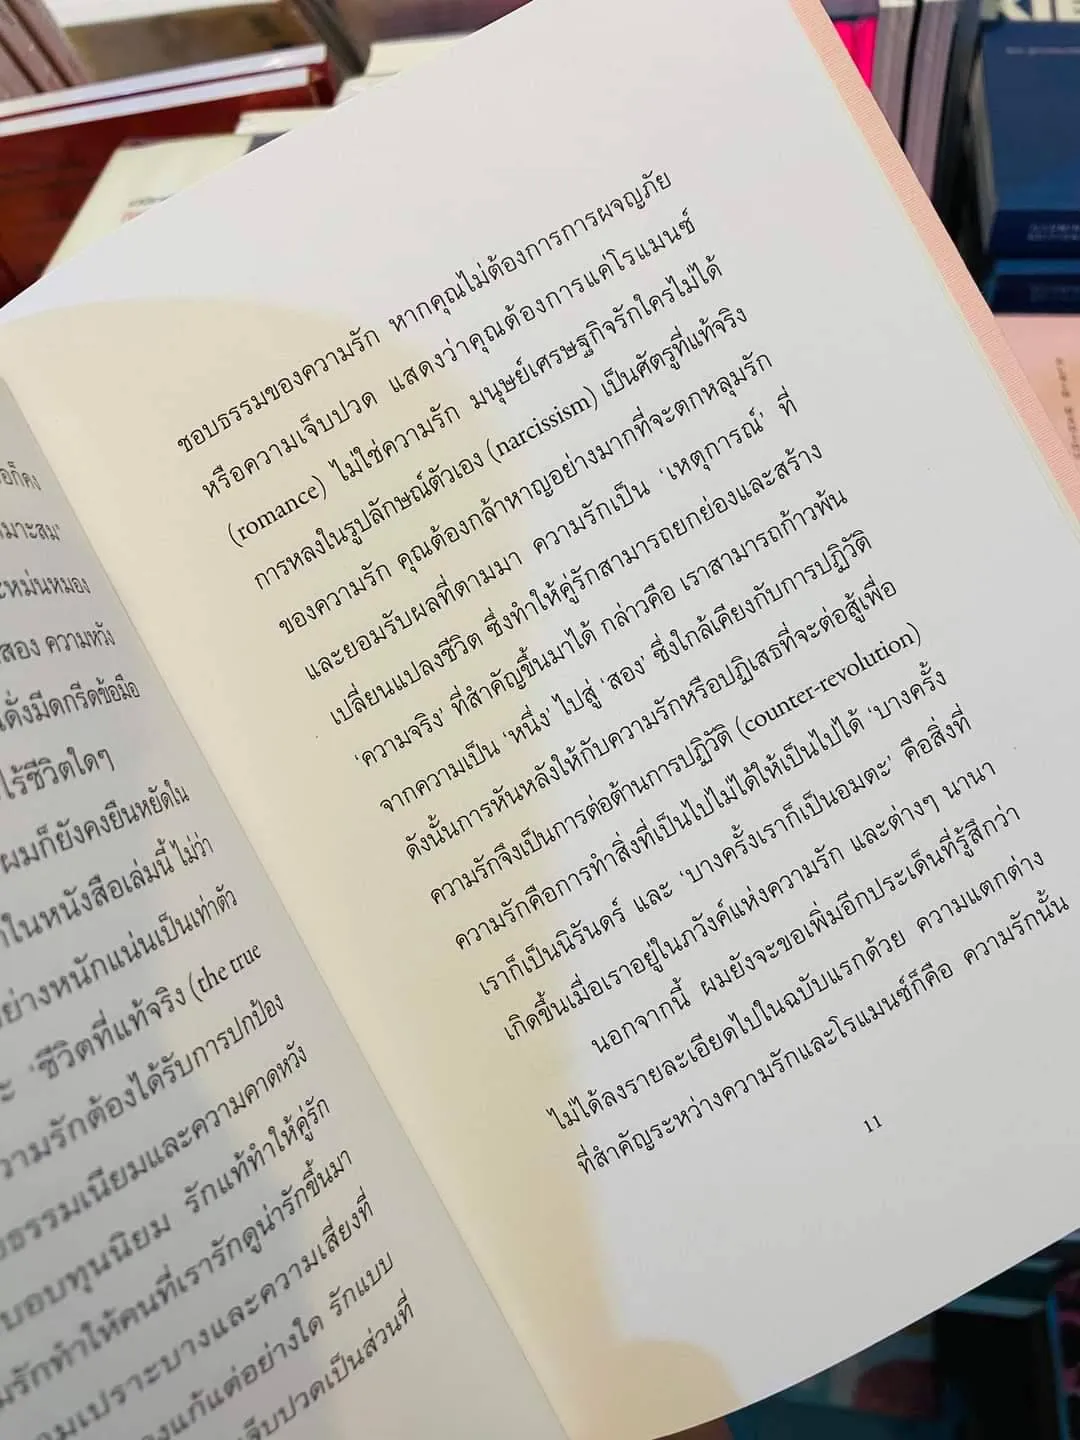 อก็คง
หมาะสม’
ะหม่นหมอง
สอง ความหวัง
นดั่งมีดกรีดข้อมือ
ไร้ชีวิตใดๆ
ผมก็ยังคงยืนหยัดใน
าในหนังสือเล่มนี้ ไม่ว่า
อย่างหนักแน่นเป็นเท่าตัว
ะ ‘ชีวิตที่แท้จริง (the true
วามรักต้องได้รับการปกป้อง
ธรรมเนียมและความคาดหวัง
บอบทุนนิยม รักแท้ทำให้คู่รัก
มรักทำให้คนที่เรารักดูน่ารักขึ้นมา
มเปราะบางและความเสี่ยงที่
งแก้แต่อย่างใด รักแบบ
เจ็บปวดเป็นส่วนที่
ชอบธรรมของความรัก หากคุณไม่ต้องการการผจญภัย
หรือความเจ็บปวด แสดงว่าคุณต้องการแค่โรแมนซ์
(romance) ไม่ใช่ความรัก มนุษย์เศรษฐกิจรักใครไม่ได้
การหลงในรูปลักษณ์ตัวเอง (narcissism) เป็นศัตรูที่แท้จริง
ของความรัก คุณต้องกล้าหาญอย่างมากที่จะตกหลุมรัก
และยอมรับผลที่ตามมา ความรักเป็น ‘เหตุการณ์’ ที่
เปลี่ยนแปลงชีวิต ซึ่งทำให้คู่รักสามารถยกย่องและสร้าง
‘ความจริง’ ที่สำคัญขึ้นมาได้ กล่าวคือ เราสามารถก้าวพ้น
จากความเป็น ‘หนึ่ง’ ไปสู่ ‘สอง’ ซึ่งใกล้เคียงกับการปฏิวัติ
ดังนั้นการหันหลังให้กับความรักหรือปฏิเสธที่จะต่อสู้เพื่อ
ความรักจึงเป็นการต่อต้านการปฏิวัติ (counter-revolution)
ความรักคือการทำสิ่งที่เป็นไปไม่ได้ให้เป็นไปได้ ‘บางครั้ง
เราก็เป็นนิรันดร์ และ ‘บางครั้งเราก็เป็นอมตะ’ คือสิ่งที่
เกิดขึ้นเมื่อเราอยู่ในภวังค์แห่งความรัก และต่างๆ นานา
นอกจากนี้ ผมยังจะขอเพิ่มอีกประเด็นที่รู้สึกว่า
ไม่ได้ลงรายละเอียดไปในฉบับแรกด้วย ความแตกต่าง
ที่สำคัญระหว่างความรักและโรแมนซ์ก็คือ ความรักนั้น
11